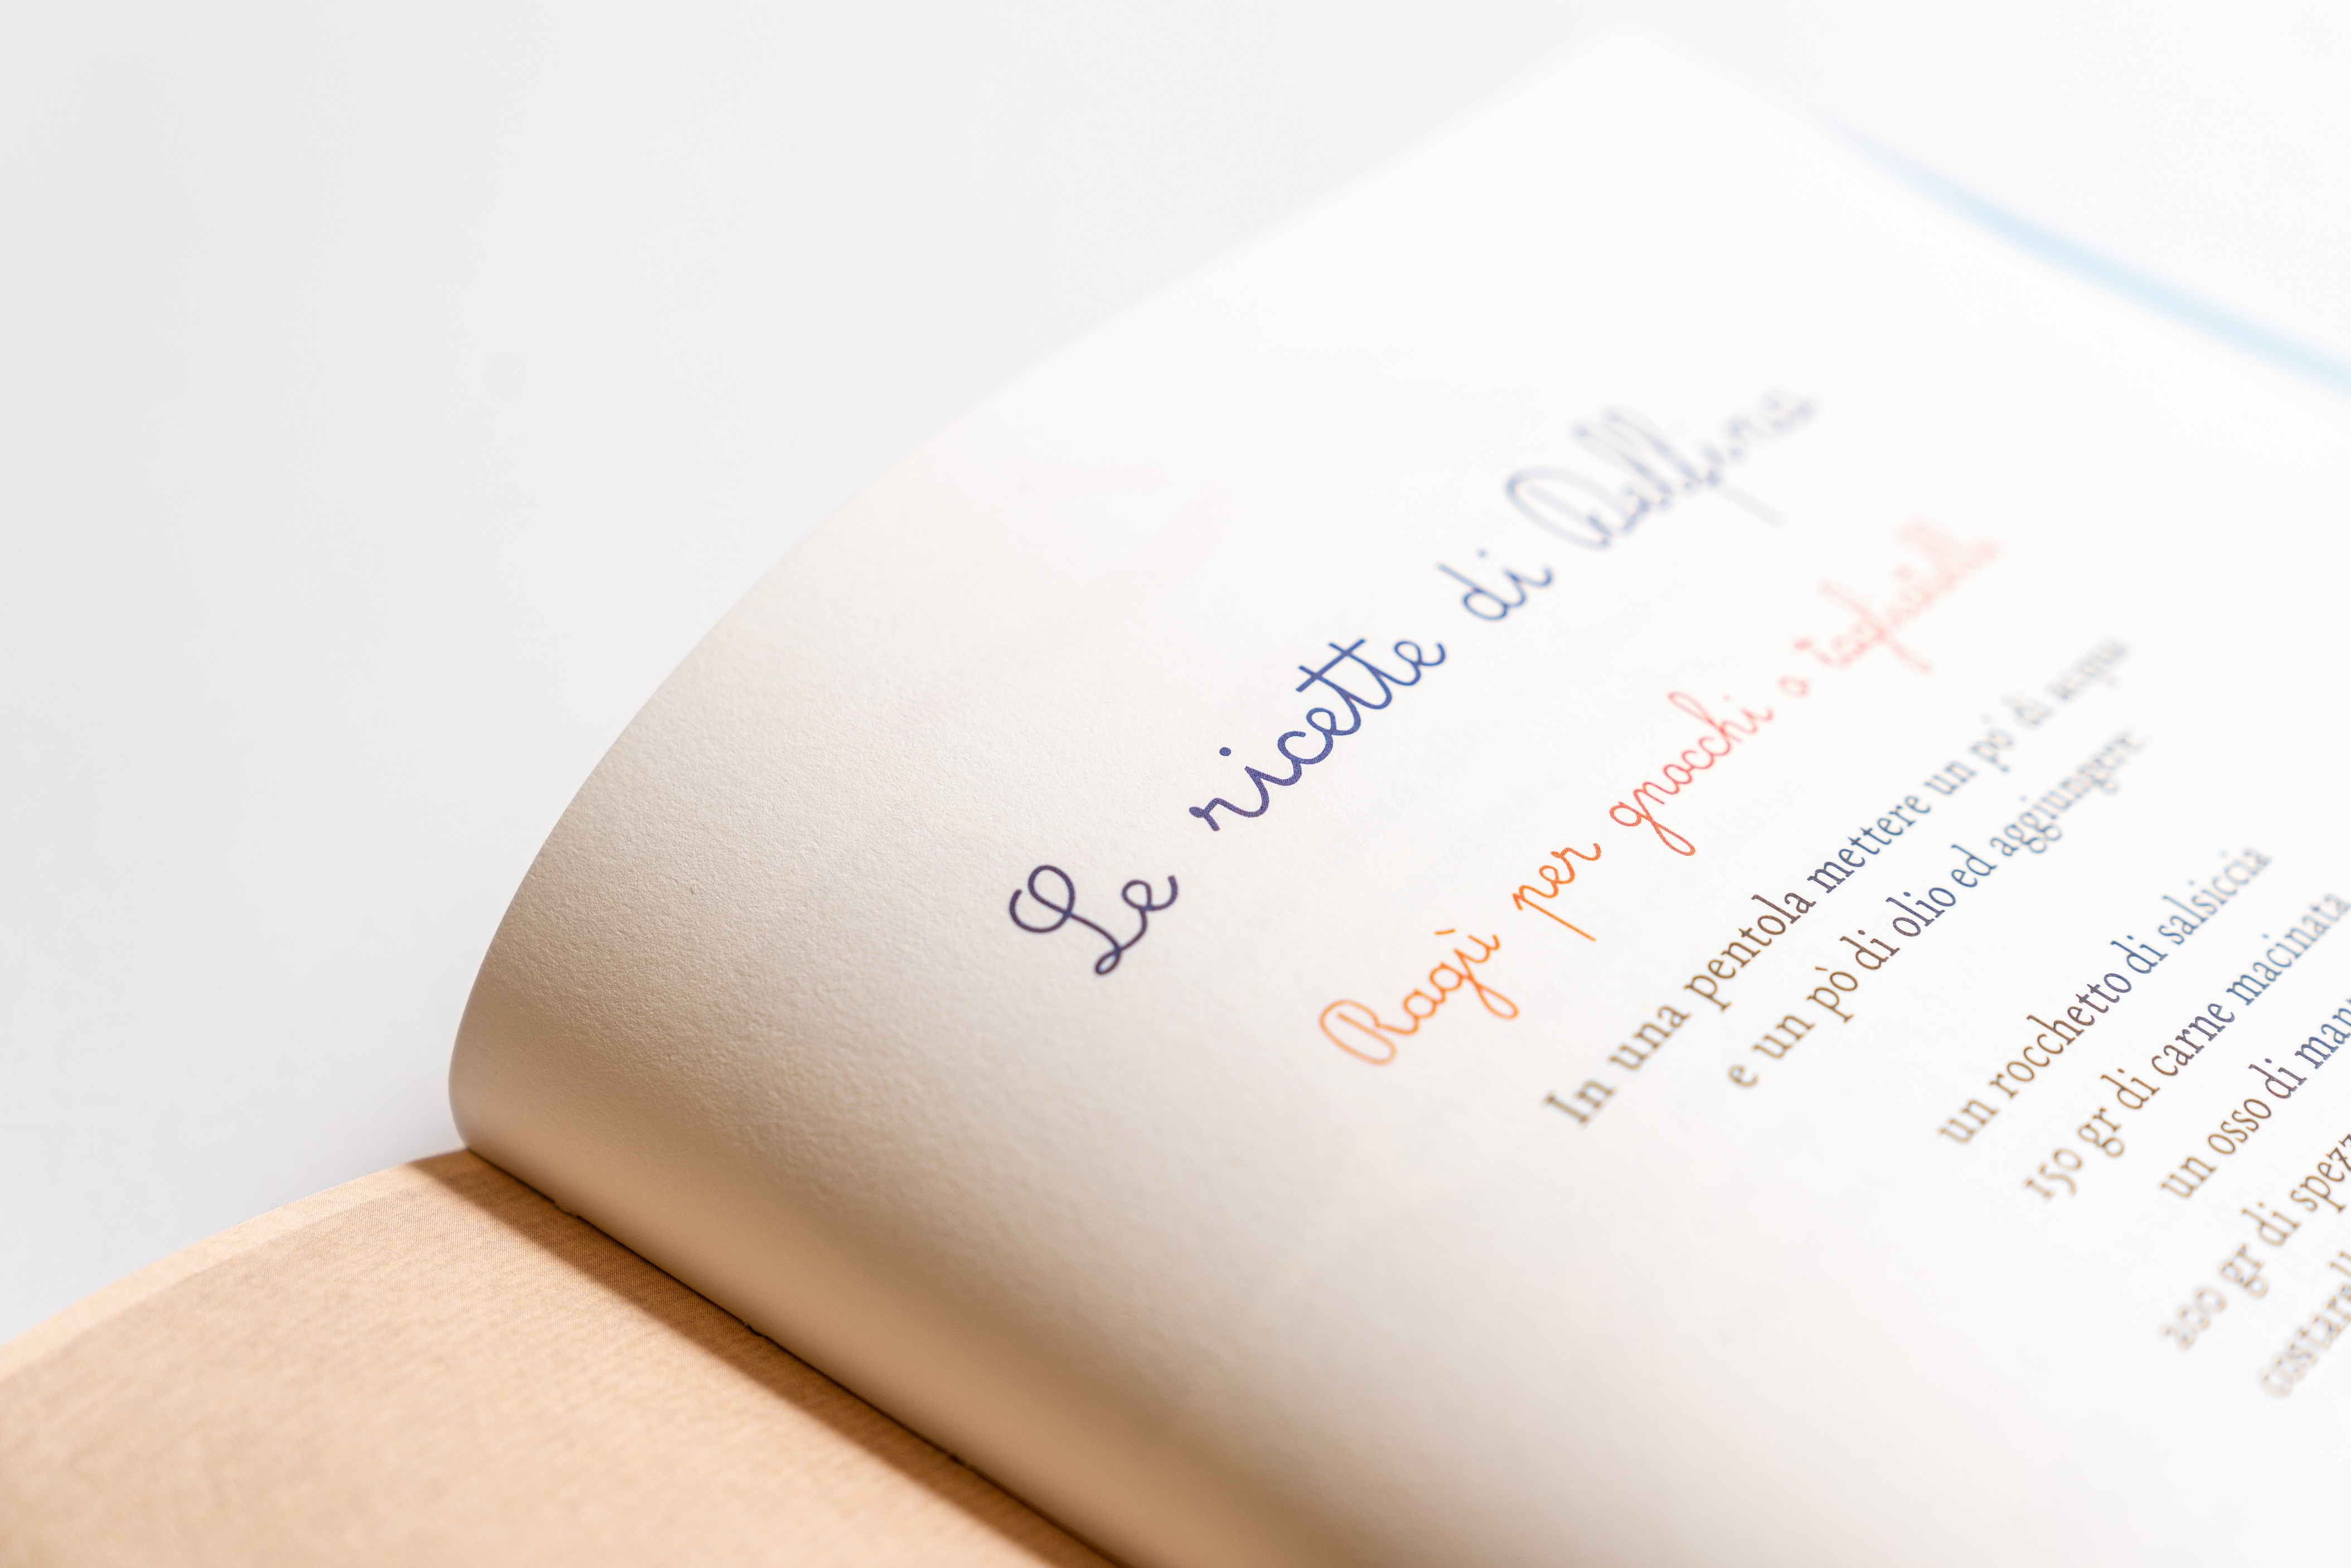 Le ricette di
Ragù per gnocchi o
In una pentola mettere un po' di acqua
e un pò di olio ed aggiungere:
un rocchetto di salsiccia
150 gr di carne macinata
un osso di
gr di